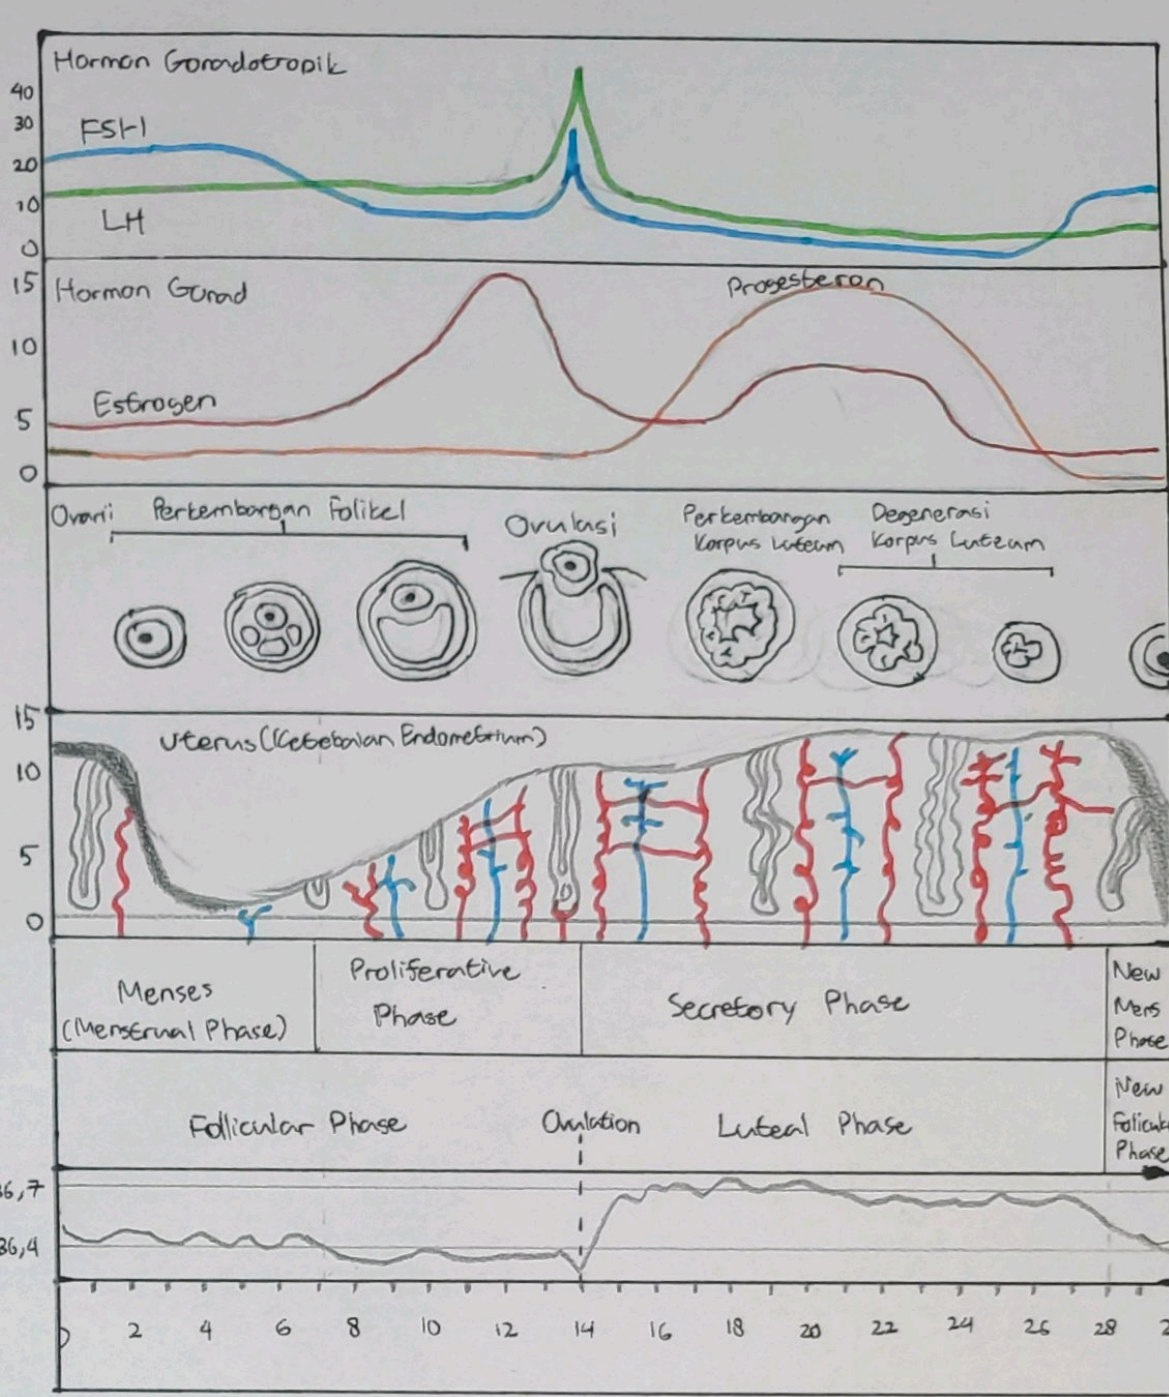 Hormon Gonadotropik
40
30
FSH
20
10
LH
0
15
Hormon Gonad
Progesteron
10
Estrogen
5
0
Ovarii
Perkembangan Folikel
Ovulasi
Perkembangan
Korpus Luteum
Degenerasi
Korpus Luteum
15
Uterus (Ketebalan Endometrium)
10
5
0
Menses
(Menstrual Phase)
Proliferative
Phase
Secretory Phase
New
Mens
Phase
Follicular Phase
Ovulation
Luteal Phase
New
Folicul
Phase
36,7
36,4
0 2 4 6 8 10 12 14 16 18 20 22 24 26 28 2